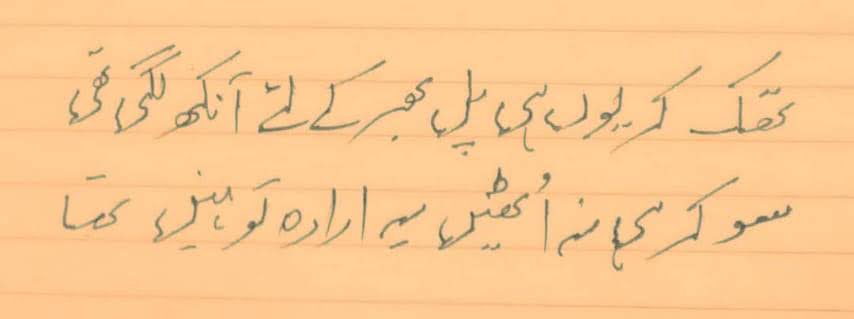 تھک کر یوں ہی پل بھر کے لئے آنکھ لگی تھی
سو کر ہی نہ اُٹھیں یہ ارادہ تو نہیں تھا